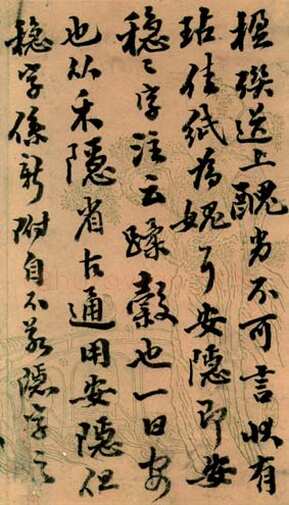 楹聯送上醜劣不可言狀有
玷佳紙為媿耳安隱即安
穩〻字注云蹂穀也一曰安
也从禾隱省古通用安隱但
穩字係新附自不若隱字之